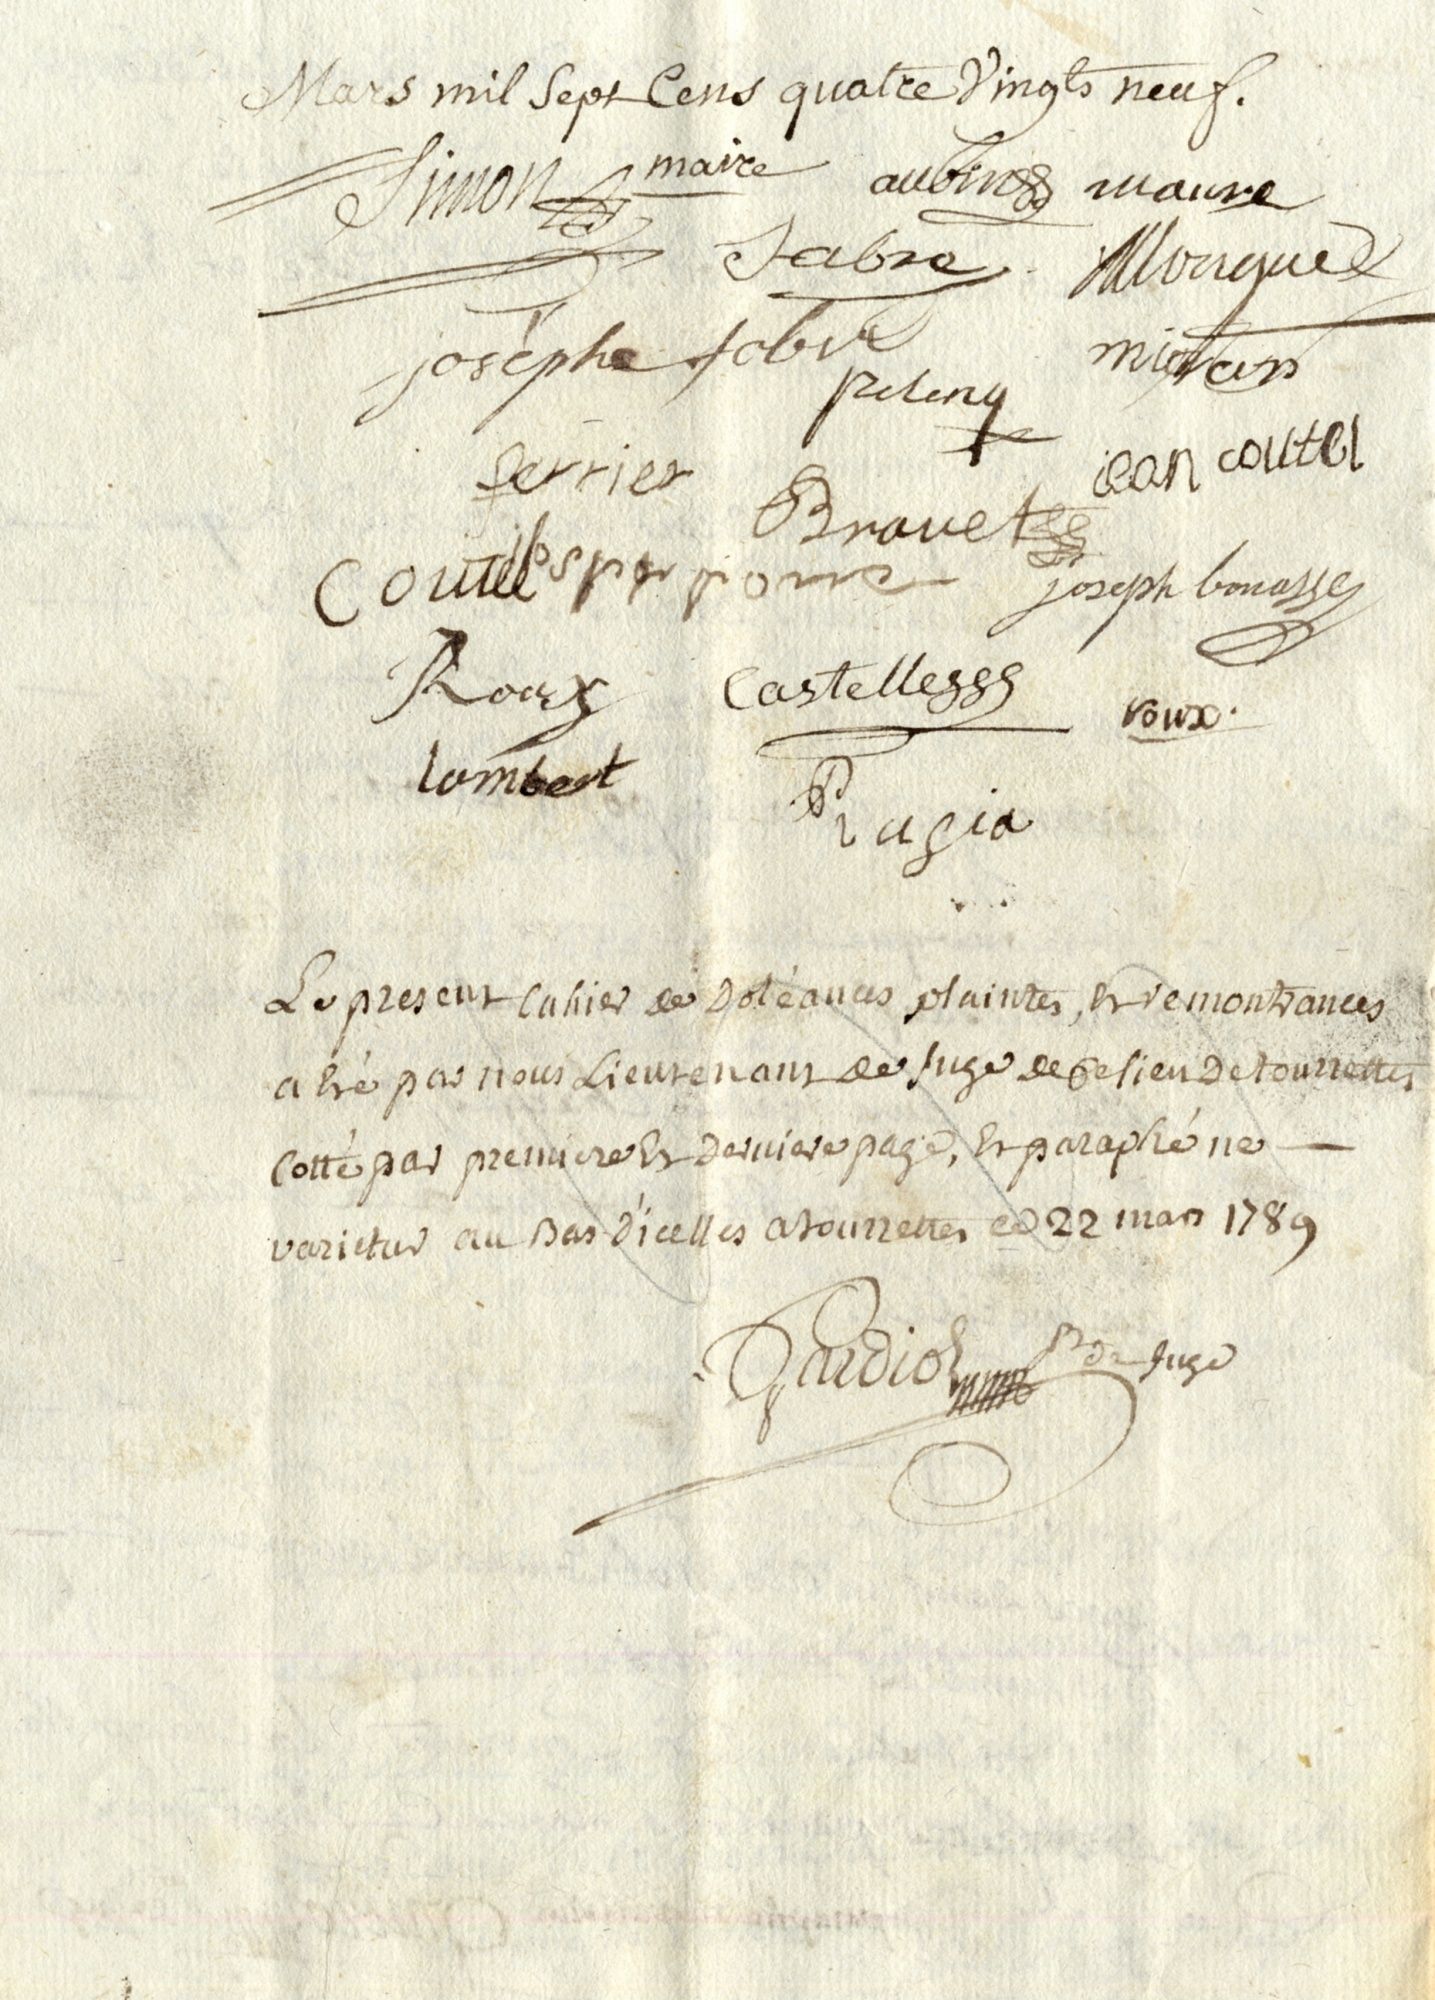 Mars mil Sept Cens quatre Vingts neuf.
Simon maire aubin maure
fabre Mougue
josephe fabre mire
pelenq
ferrier jean coutel
Bravet
Coutel joseph bonasse
Roux Castelle roux.
lambert Rugia
Le present Cahier de Doléances plaintes, Et remontrances
a Eté par nous Lieutenant de Juge de Ce lieu De tourrettes
Cotté par premiere Et Derniere page, Et paraphé ne —
varietur au Bas D'icelles a tourrettes ce 22 mars 1789
Gardiol Lt de Juge